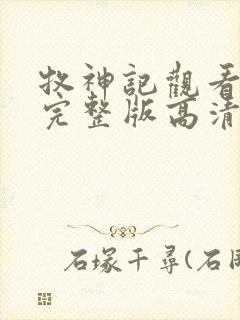 牧神記觀看
完整版高清
石塚千尋(石